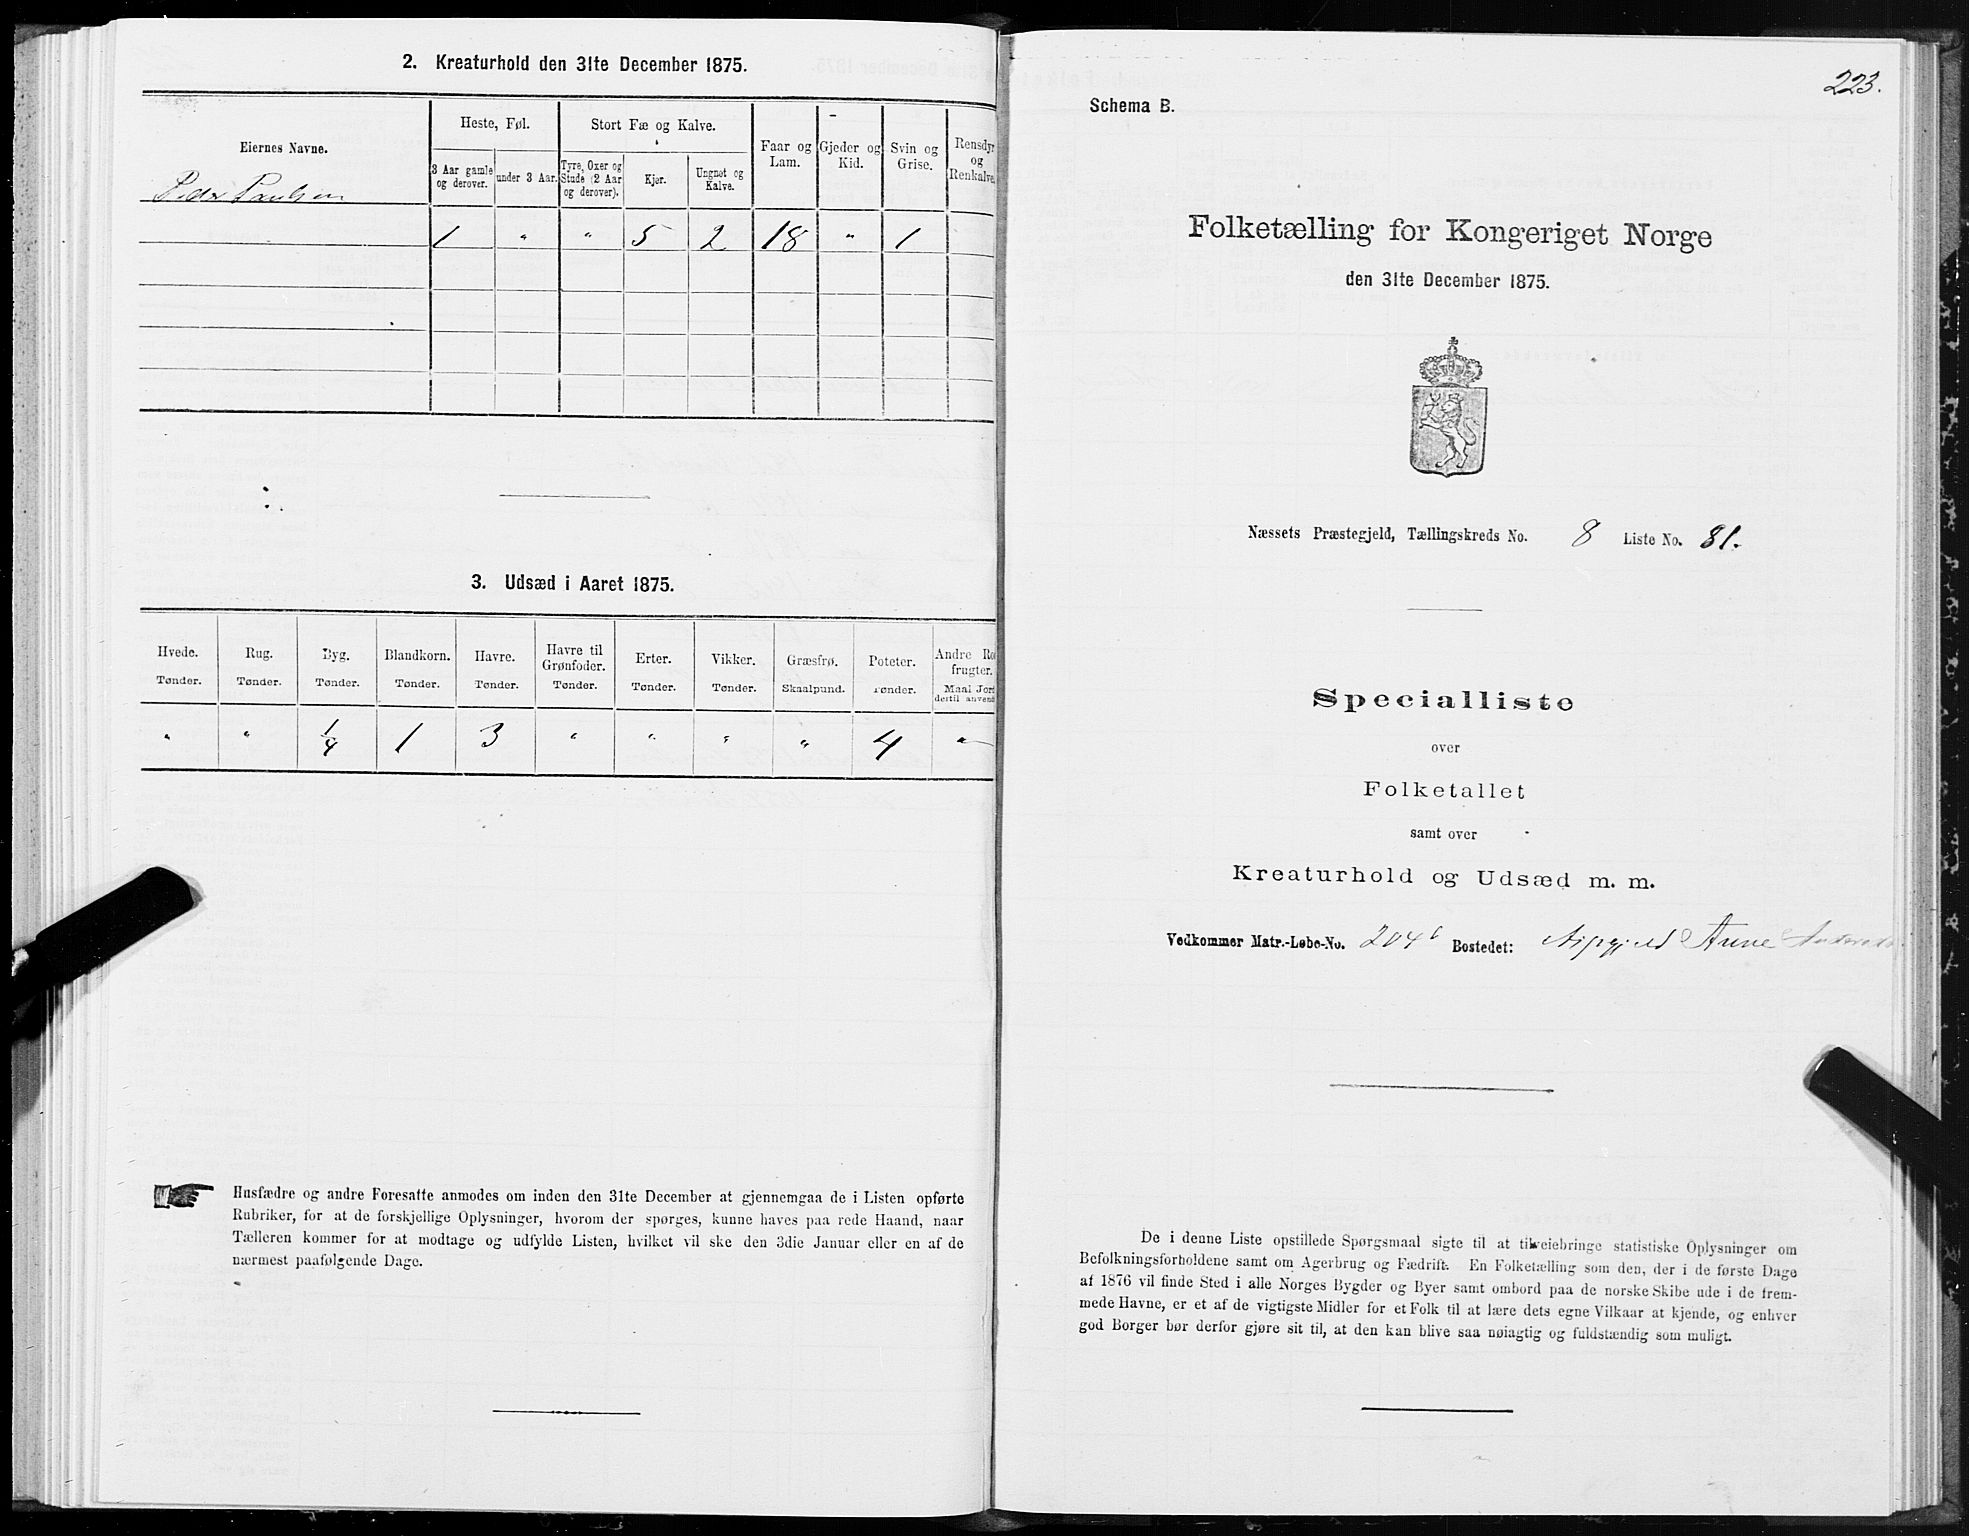 2. Kreaturhold den 31te December 1875.
Eiernes Navne.
Heste, Føl.
Stort Fæ og Kalve.
Faar og Lam.
Gjeder og Kid.
Svin og Grise.
Rensdyr og Renkalve.
3 Aar gamle og derover.
under 3 Aar.
Tyre, Oxer og Stude (2 Aar og derover).
Kjør.
Ungnøt og Kalve.
Peder Paulsen
1 " " 5 2 18 " 1
3. Udsæd i Aaret 1875.
Hvede. Rug. Byg. Blandkorn. Havre. Havre til Grønfoder. Erter. Vikker. Græsfrø. Poteter. Andre Ro frugter.
Tønder. Tønder. Tønder. Tønder. Tønder. Tønder. Tønder. Tønder. Skaalpund. Tønder. Maal Jord dertil anvendt
" " 1/4 1 3 " " " " 4 "
Husfædre og andre Foresatte anmodes om inden den 31te December at gjennemgaa de i Listen opførte
Rubriker, for at de forskjellige Oplysninger, hvorom der spørges, kunne haves paa rede Haand, naar
Tælleren kommer for at modtage og udfylde Listen, hvilket vil ske den 3die Januar eller en af de
nærmest paafølgende Dage.
223.
Schema B.
Folketælling for Kongeriget Norge
den 31te December 1875.
Næssets Præstegjeld, Tællingskreds No. 8 Liste No. 81.
Specialliste
over
Folketallet
samt over
Kreaturhold og Udsæd m. m.
Vedkommer Matr.-Løbe-No. 204 b Bostedet: Anne
De i denne Liste opstillede Spørgsmaal sigte til at tilveiebringe statistiske Oplysninger om
Befolkningsforholdene samt om Agerbrug og Fædrift. En Folketælling som den, der i de første Dage
af 1876 vil finde Sted i alle Norges Bygder og Byer samt ombord paa de norske Skibe ude i de frem-
mede Havne, er et af de vigtigste Midler for et Folk til at lære dets egne Vilkaar at kjende, og enhver
god Borger bør derfor gjøre sit til, at den kan blive saa nøiagtig og fuldstændig som muligt.